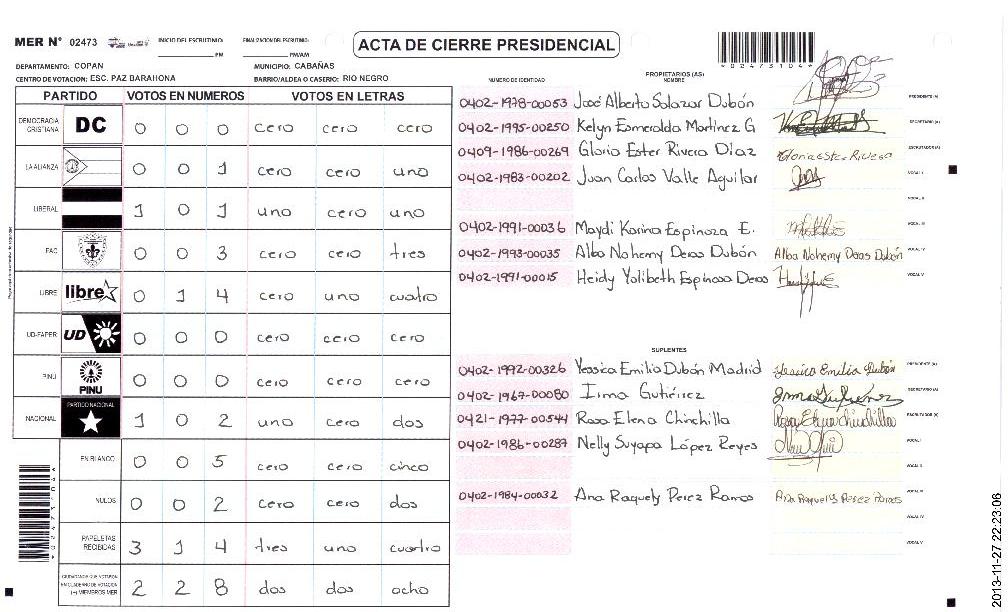 MER N° 02473
INICIO DEL ESCRUTINIO: PM
FINALIZACION DEL ESCRUTINIO: PM/AM
ACTA DE CIERRE PRESIDENCIAL
DEPARTAMENTO: COPAN
MUNICIPIO: CABAÑAS
CENTRO DE VOTACION: ESC. PAZ BARAHONA
BARRIO/ALDEA O CASERIO: RIO NEGRO
*02473104*
PARTIDO VOTOS EN NUMEROS VOTOS EN LETRAS
DEMOCRACIA CRISTIANA DC 0 0 0 cero cero cero
LA ALIANZA 0 0 1 cero cero uno
LIBERAL 1 0 1 uno cero uno
PAC 0 0 3 cero cero tres
LIBRE libre 0 1 4 cero uno cuatro
UD-FAPER UD 0 0 0 cero cero cero
PINU PINU 0 0 0 cero cero cero
NACIONAL PARTIDO NACIONAL 1 0 2 uno cero dos
EN BLANCO 0 0 5 cero cero cinco
NULOS 0 0 2 cero cero dos
PAPELETAS RECIBIDAS 3 1 4 tres uno cuatro
CIUDADANOS QUE VOTARON EN CUADERNO DE VOTACION (+) MIEMBROS MER 2 2 8 dos dos ocho
NUMERO DE IDENTIDAD
PROPIETARIOS (AS)
NOMBRE
0402-1978-00053 José Alberto Salazar Dubón PRESIDENTE (A)
0402-1995-00250 Kelyn Esmeralda Martínez G SECRETARIO (A)
0409-1986-00269 Gloria Ester Rivera Díaz Gloria Ester Rivera ESCRUTADOR (A)
0402-1983-00202 Juan Carlos Valle Aguilar VOCAL I
VOCAL II
0402-1991-00036 Maydi Karina Espinoza E. VOCAL III
0402-1993-00035 Alba Nohemy Deras Dubón Alba Nohemy Deras Dubón VOCAL IV
0402-1991-00015 Heidy Yolibeth Espinoza Deras VOCAL V
SUPLENTES
0402-1992-00326 Yessica Emilia Dubón Madrid Yessica Emilia Dubón PRESIDENTE (A)
0402-1967-00080 Irma Gutiérrez Irma Gutierrez SECRETARIO (A)
0421-1977-00544 Rosa Elena Chinchilla Rosa Elena Chinchilla ESCRUTADOR (A)
0402-1986-00287 Nelly Suyapa López Reyes VOCAL I
VOCAL II
0402-1984-00032 Ana Raquely Perez Ramos Ana Raquely Perez Ramos VOCAL III
VOCAL IV
VOCAL V
*02473104*
2013-11-27 22:23:06